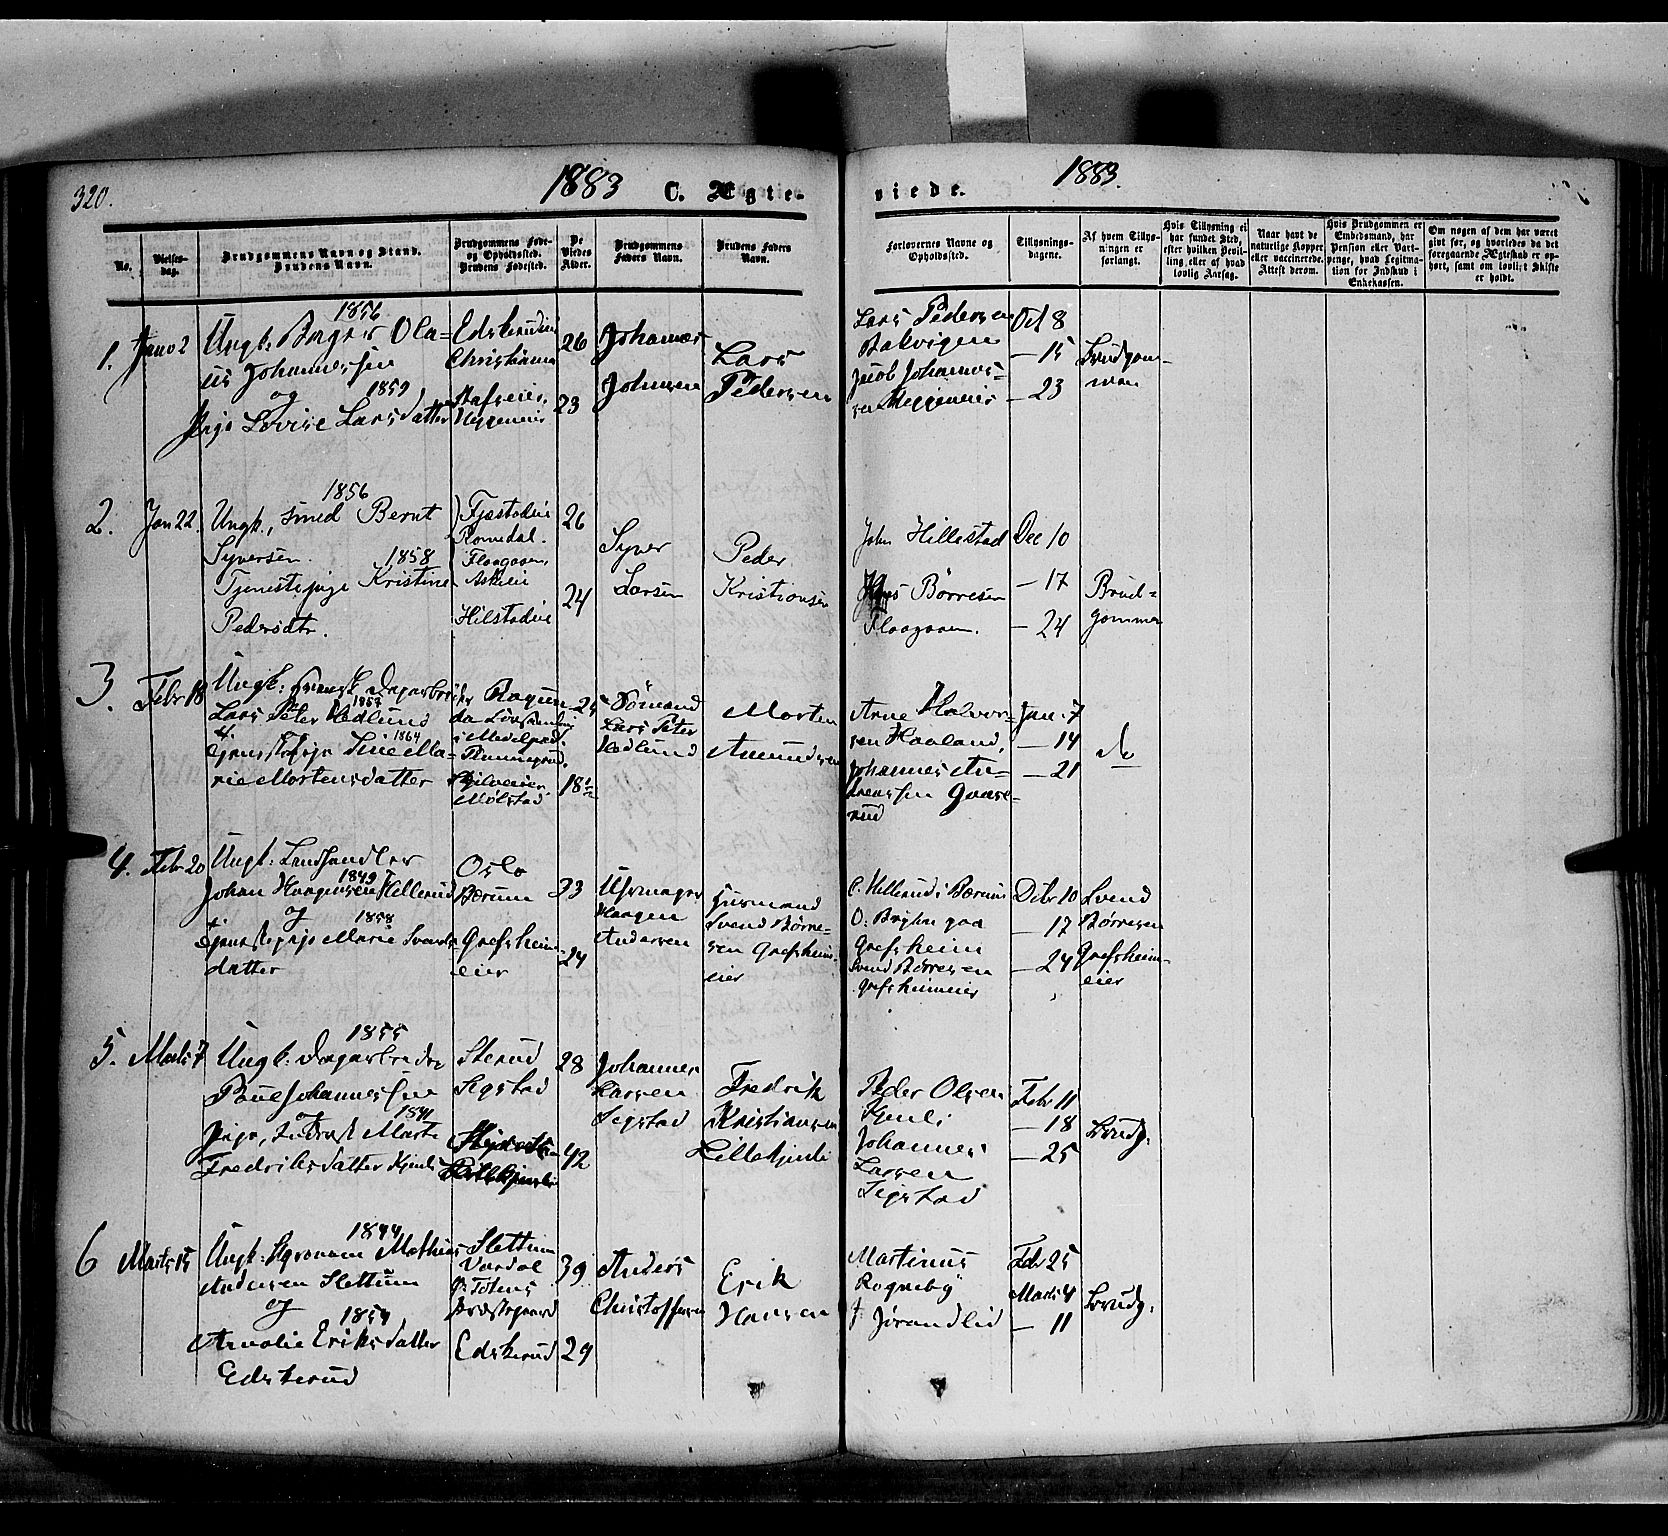 320.
1883
C. Ægte-
viede.
1883.
No.
Vielses-
dag.
Brudgommens Navn og Stand.
Brudens Navn.
Brudgommens Føde-
og Opholdssted.
Brudens Fødested.
De
Viedes
Alder.
Brudgommens
Faders Navn.
Brudens Faders
Navn.
Forlovernes Navne og
Opholdssted.
Tillysnings-
dagene.
Af hvem Tillys-
ningen er
forlangt.
Hvis Tillysning ei
har fundet Sted,
efter hvilken Bevil-
ling eller af hvad
lovlig Aarsag.
Naar havt de
naturlige Kopper
eller vaccinerede.
Attest derom.
Hvis Brudgommen er
Embedsmand, har
Pension eller Vart-
penge, hvad Legitima-
tion for Indskud i
Enkekassen.
Om nogen af dem har været
givt før, og hvorledes da det
foregaaende Ægteskab er op-
hørt, samt om lovligt Skifte
er holdt.
1.
Janv 2
1856
Ungk: Birger Ola-
us Johannessen
og 1859
Pige Lovise Larsdatter
Christiania
Heggeneier
26
23
Johannes
Johnsen
Lars
Pedersen
Lars Pedersen
Bakvigen
Jacob Johannes-
sen Heggeneier
Oct 8
— 15
— 23
Brudgom-
men
2.
Jan 22.
1856
Ungk., Smed Bernt
Syversen. 1858
Tjenestepige Kristine
Pedersdtr.
Fjæstadeie
Romedal.
Flaagaen,
Askeie
Hilstadeie
26
24
Syver
Larsen
Peder
Kristiansen
John Hillestad
Børresen
Flaagaen.
Dec 10
— 17
— 24
Brud-
gommen
3.
Febr 18
Ungk: svensk Dagarbeider
1857
Lars Peter Hedlund
& 1864
Tjenestepige Sine Ma-
rie Mortensdatter
Ragun
i Medelpad.
Mølstad
25
18½
Sømand
Lars Peter
Hedlund
Morten
Amundsen
Arne Halvor-
sen Haaland,
Johannes An-
dreassen Gaase-
rud
Jan. 7
— 14
— 21
do
4.
Febr 20
Ungk: Landhandler
1849
Johan Haagensen Hellerud
og 1858
Tjenestepige Marie Svends-
datter
Oslo
Bærum
Grefsheim-
eier
33
24
Urmager
Haagen
Andersen
Husmand
Svend Børre-
sen Grefsheim-
eier
C. Hellerud i Bærum
O. Bryhn paa
Grefsheim
Svend Børresen
Grefsheimeier
Dcbr 10
— 17
— 24
Svend
Børresen
Grefsheim-
eier
5.
Marts 7
1855
Ungk: Dagarbeider
Paul Johannessen
og 1841
Pige, Inderst Marte
Fredriksdatter Kjenli
Sterud
Segstad
28
42
Johannes
Larsen
Segstad
Fredrik
Kristiansen
Lillekjenli
Peder Olsen
Kjenli
Johannes
Larsen
Segstad
Febr 11
— 18
— 25
Brudg.
6
Marts 15
1844
Ungk: Agronom Mathias
Andersen Slettum
og 1854
Amalie Eriksdatter
Edskerud
Slettum
Vardal
Ø: Totens
Præstegaard
Edskerud
39
29
Anders
Christoffersen
Erik
Hansen
Martinus
Rogneby
J. Jørandlid
Febr 25
Marts 4
— 11
Brudg.